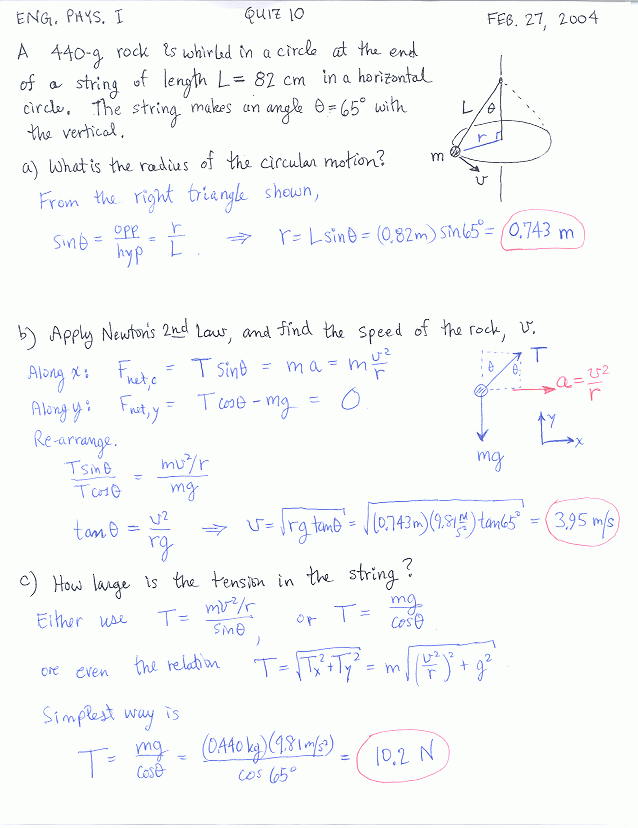 ENG. PHYS. I QUIZ 10 FEB. 27, 2004
A 440-g rock is whirled in a circle at the end
of a string of length L = 82 cm in a horizontal
circle. The string makes an angle θ = 65° with
the vertical.
L θ
r
m
v
a) What is the radius of the circular motion?
From the right triangle shown,
sinθ = opp/hyp = r/L . ⇒ r = L sinθ = (0.82m) sin65° = 0.743 m
b) Apply Newton's 2nd Law, and find the speed of the rock, v.
Along x: Fnet,c = T sinθ = ma = m v²/r
Along y: Fnet,y = T cosθ - mg = 0
θ θ T
a = v²/r
mg
y
x
Re-arrange.
T sinθ / T cosθ = mv²/r / mg
tanθ = v²/rg ⇒ v = √rg tanθ = √(0.743m)(9.81 m/s²) tan65° = 3.95 m/s
c) How large is the tension in the string?
Either use T = mv²/r / sinθ , or T = mg/cosθ
ore even the relation T = √Tx² + Ty² = m √(v²/r)² + g²
Simplest way is
T = mg/cosθ = (0.440 kg)(9.81 m/s²) / cos 65° = 10.2 N